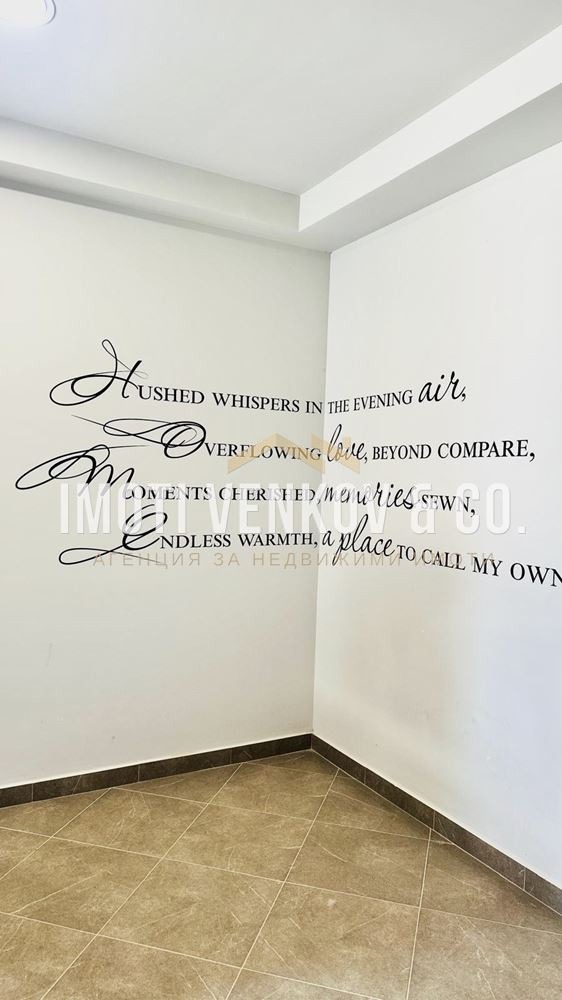 HUSHED WHISPERS IN THE EVENING air,
OVERFLOWING love, BEYOND COMPARE,
MOMENTS CHERISHED, memories SEWN,
IMOTI VENKOV & CO.
ENDLESS WARMTH, a place TO CALL MY OWN
АГЕНЦИЯ ЗА НЕДВИЖИМИ ИМОТИ